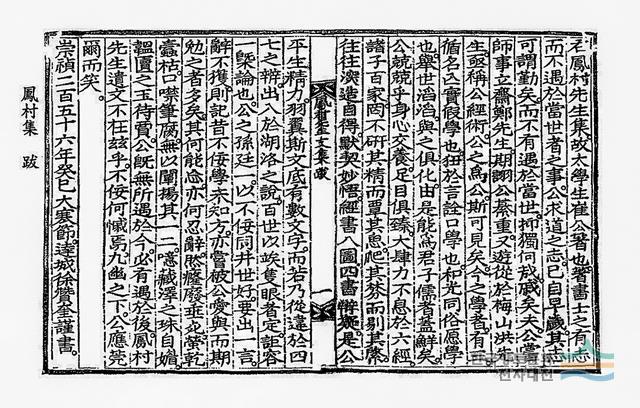 右鳳村先生集故太學生崔公著也著書士之有志
而不遇於當世者之事公求道之志已自早歲其志
可謂勤矣而不有遇於當世抑獨何哉戚矣夫公嘗
師事立齋鄭先生期詡公綦重又遊從於梅山洪先
生亟稱公經術公之爲公斯可見矣今之學者有
循名忘實假學也狃於言詮口學也和光同俗愿學
也擧世滔滔與之俱化由是能爲君子儒者蓋鮮矣
公兢兢乎身心交養足目俱臻大肆力不息於六經
諸子百家罔不硏其精而覃其思爬其棼而剔其縻
往往深造自得默契妙悟經書八圖四書辨疑是公
文集跋 一
平生精力羽翼斯文底有數文字而若乃從違於四
七之辨出入於湖洛之說百世以竢隻眼者定詎容
一槩論也公之孫廷一以不佞同井世好要出一言
辭不獲則記昔不佞學未知方亦嘗被公愛與而期
勉之者多矣其何能忘亦何忍辭然癃廢垂死榮乾
蠹枯口噤筆腐無以闡揚其一二噫藏澤之珠自媚
韞匵之玉待賈公旣無所遇於今必有遇於後鳳村
先生遺文不在玆乎不佞何憾焉九幽之下公應莞
爾而笑。
崇禎二百五十六年癸巳大寒節達城徐贊奎謹書。
鳳村集 跋
전자대전